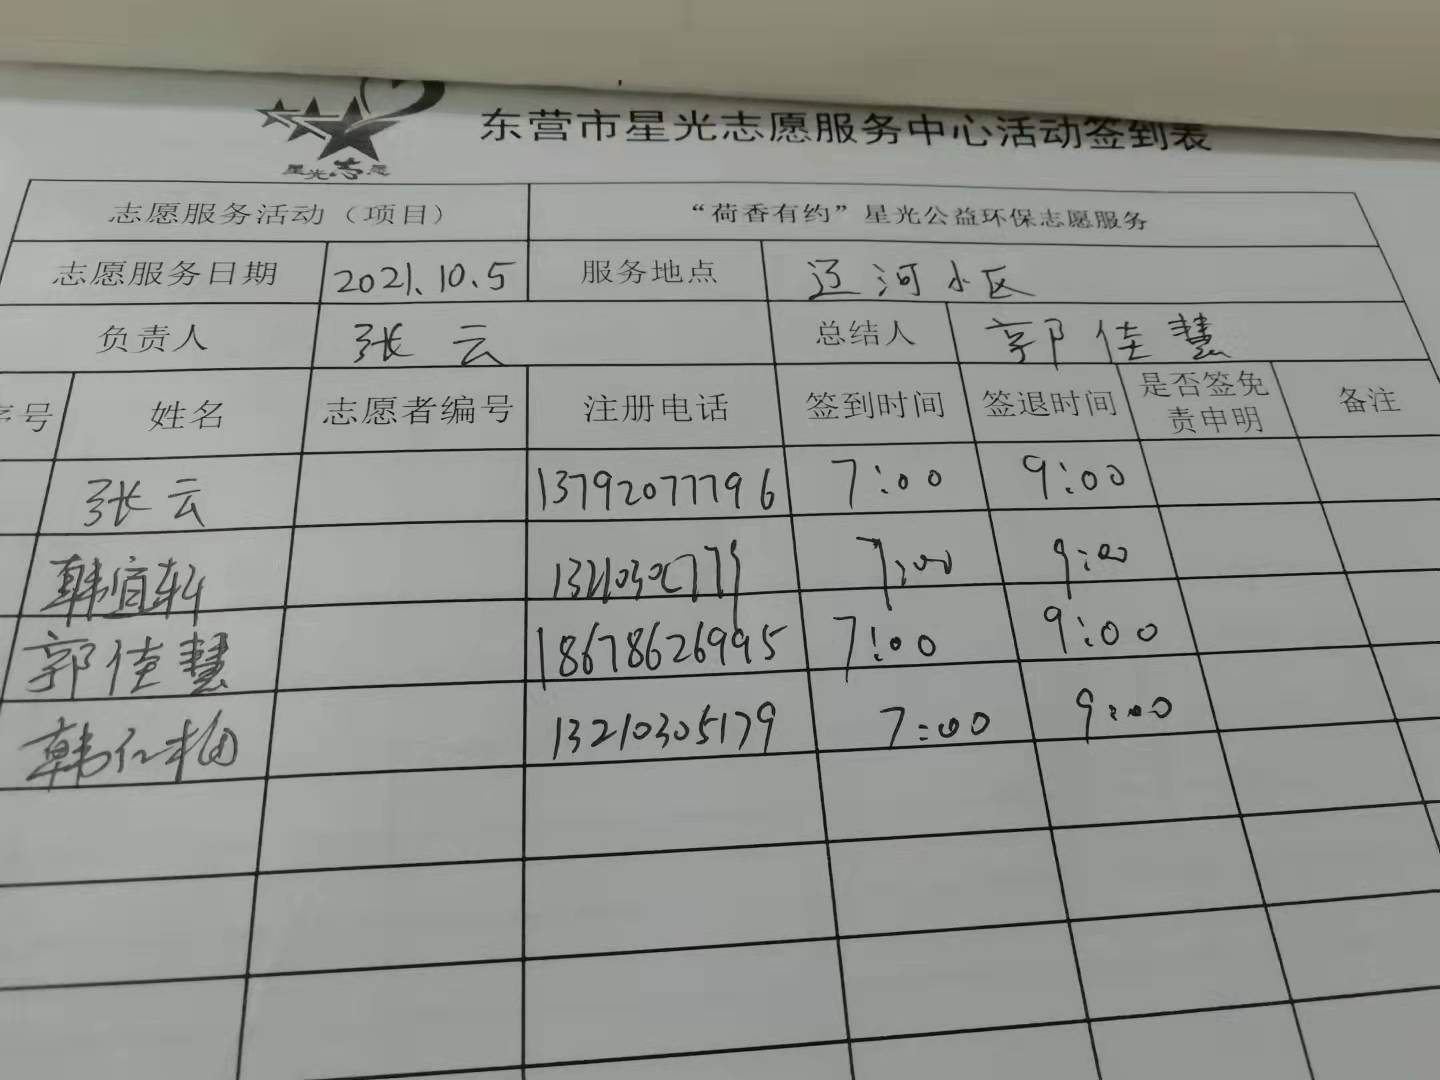 东营市星光志愿服务中心活动签到表
星光志愿
志愿服务活动（项目） “荷香有约”星光公益环保志愿服务
志愿服务日期 2021.10.5 服务地点 辽河小区
负责人 张云 总结人 郭佳慧
序号 姓名 志愿者编号 注册电话 签到时间 签退时间 是否签免责申明 备注
张云 13792077796 7:00 9:00
韩宜轩 7:00 9:00
郭佳慧 18678626995 7:00 9:00
韩仁梅 13210305179 7:00 9:00